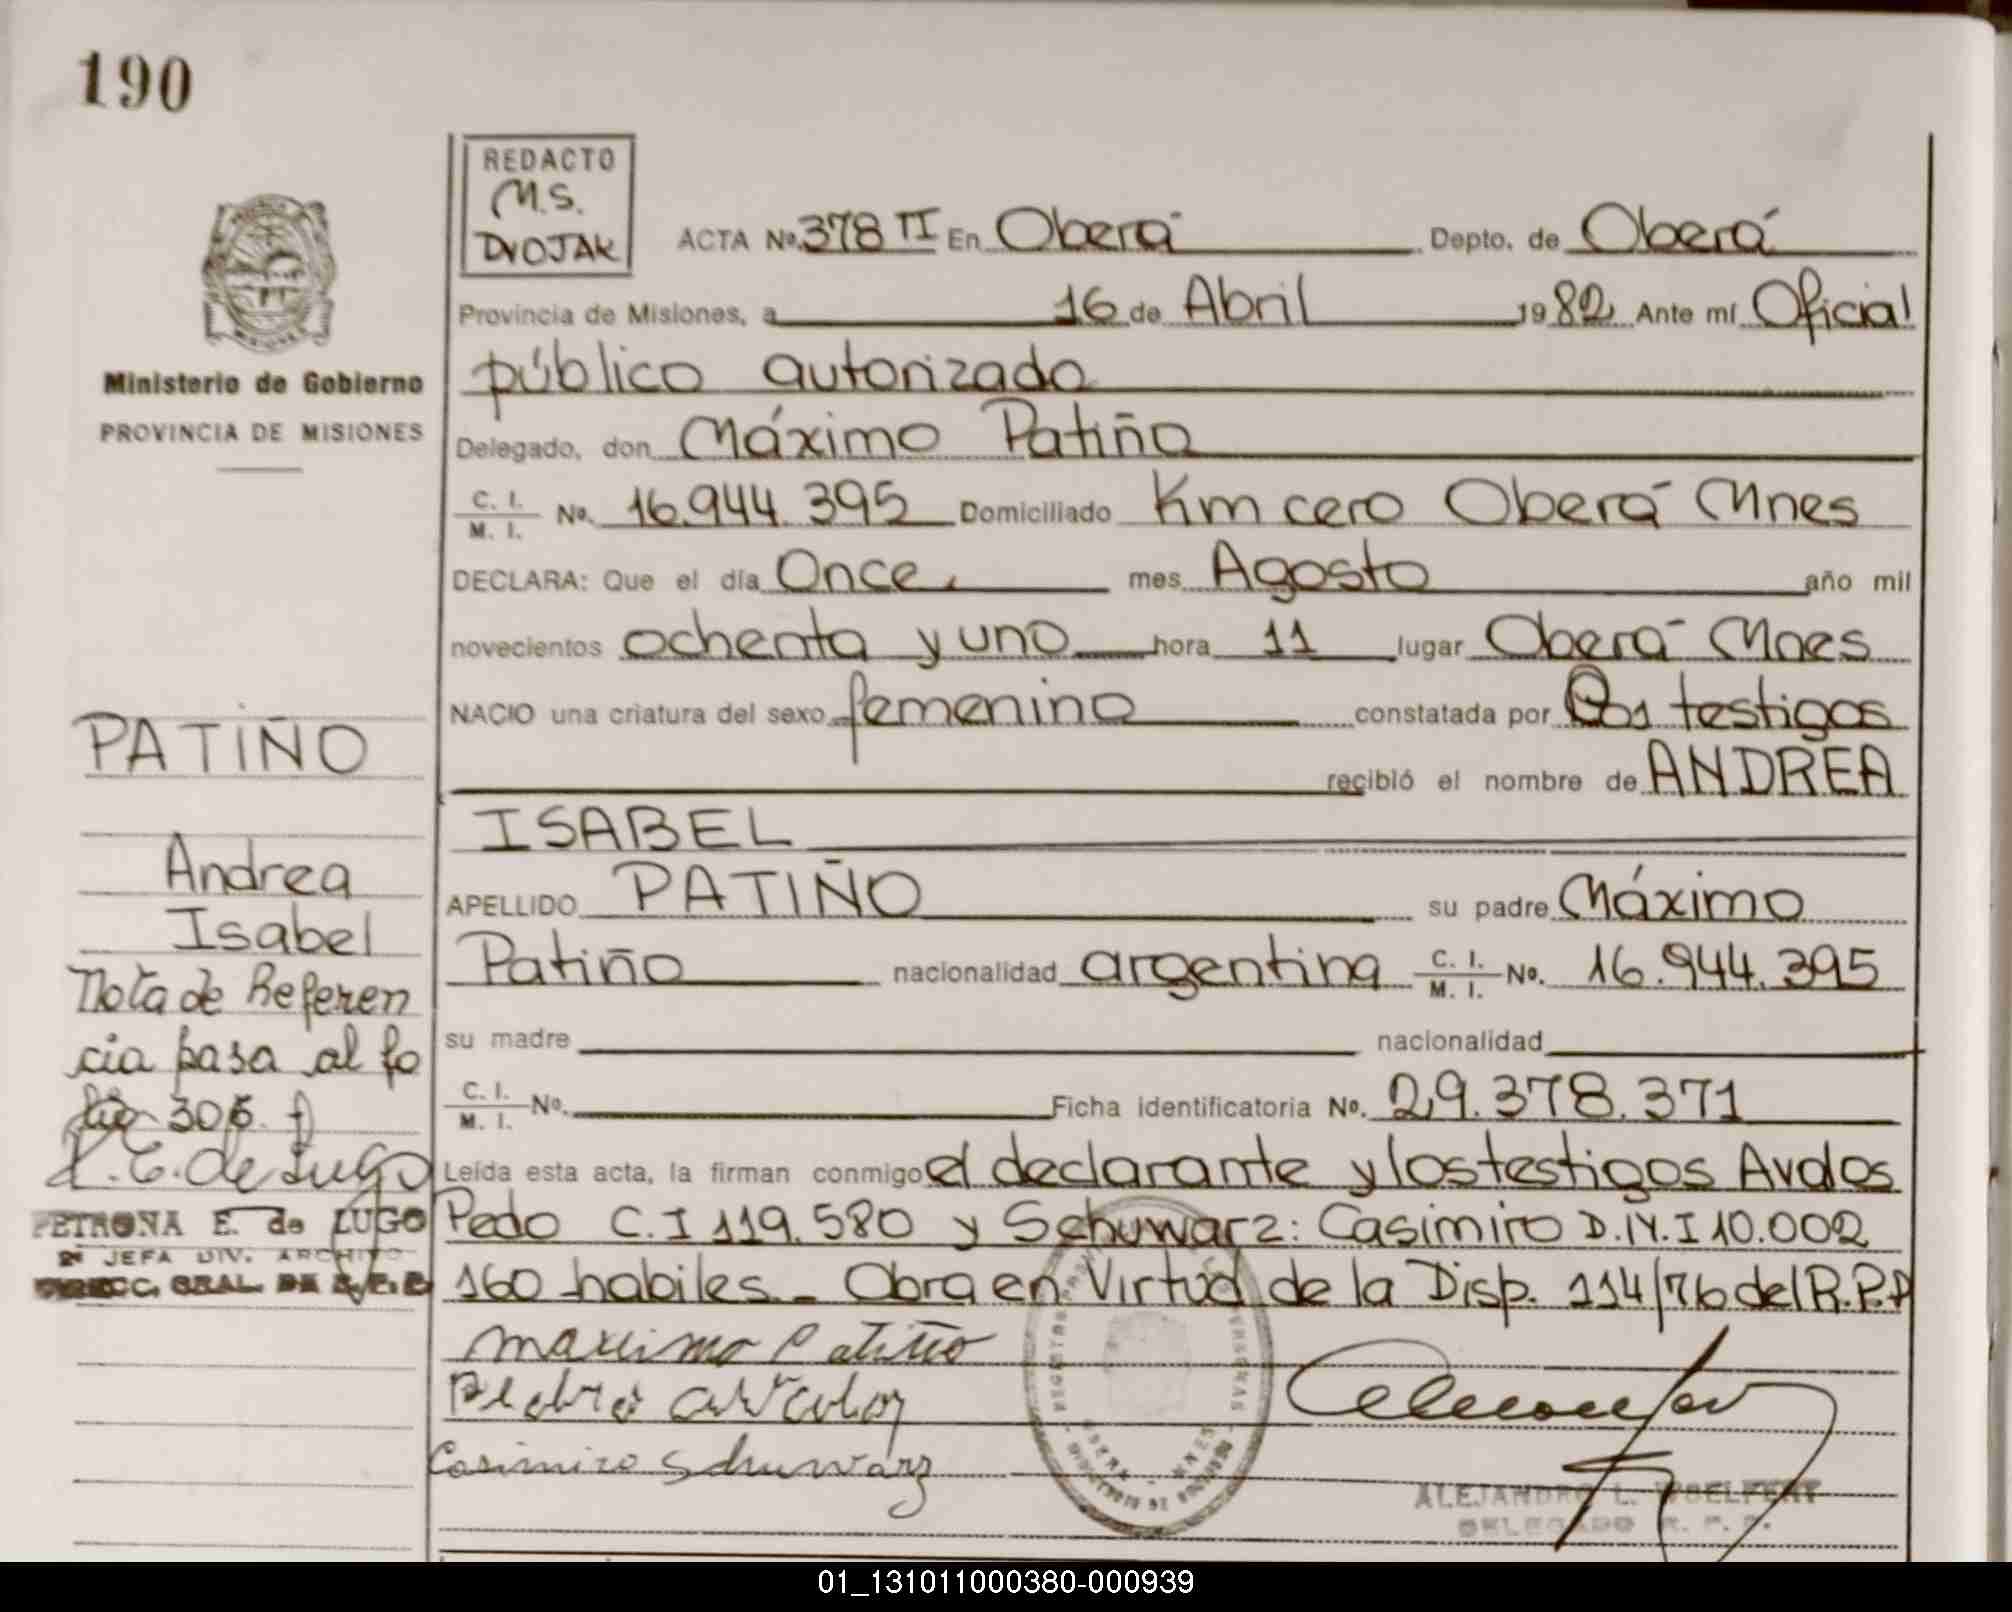 190
REDACTO
M.S.
DVOJAK
ACTA Nº 378 TI En Oberá Depto. de Oberá
Provincia de Misiones, a 16 de Abril 1982 Ante mí Oficial
público autorizado
Delegado, don Máximo Patiño
C. I. M. I. Nº. 16.944.395 Domiciliado Km cero Oberá Mnes
DECLARA: Que el día Once mes Agosto año mil
novecientos ochenta y uno hora 11 lugar Oberá Mnes
NACIO una criatura del sexo femenino constatada por Dos testigos
recibió el nombre de ANDREA
ISABEL
APELLIDO PATIÑO su padre Máximo
Patiño nacionalidad argentina C. I. M. I. Nº. 16.944.395
su madre nacionalidad
C. I. M. I. Nº. Ficha identificatoria Nº. 29.378.371
Leída esta acta, la firman conmigo el declarante y los testigos Avalos
Pedo C.I 119.580 y Schuwarz: Casimiro D.N.I 10.002
160 habiles - Obra en Virtud de la Disp. 114/76 del R.P.P
Maximo Patiño
Pedro
Casimiro Schuwarz
ALEJANDRO L. WOELFERT
DELEGADO R. P. P.
Ministerio de Gobierno
PROVINCIA DE MISIONES
PATIÑO
Andrea
Isabel
Nota de Referen
cia pasa al fo
lio 306.
P. E. de Lugo
PETRONA E. de LUGO
2ª JEFA DIV. ARCHIVO
DIRECC. GRAL. DE
01_131011000380-000939